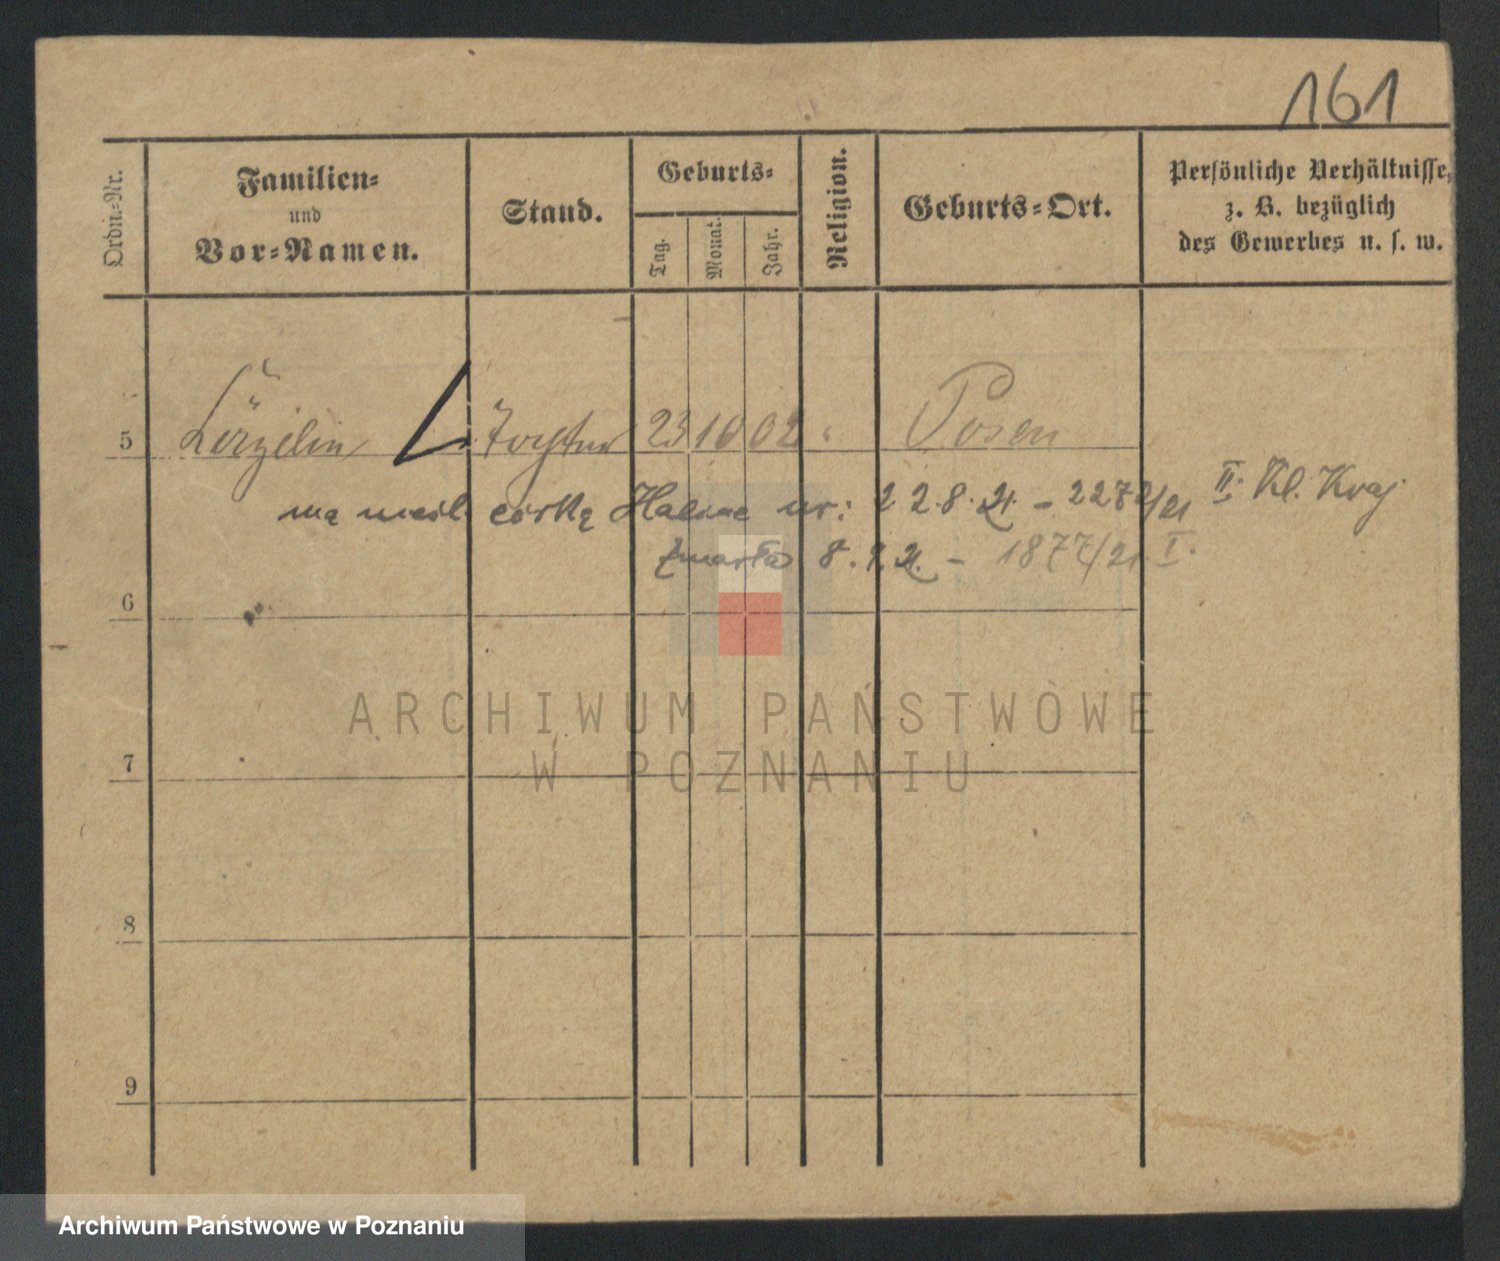 161
Ordn.-Nr.
Familien-
und
Vor-Namen.
Stand.
Geburts-
Tag.
Monat.
Jahr.
Religion.
Geburts-Ort.
Persönliche Verhältnisse,
z. B. bezüglich
des Gewerbes u. s. w.
5 Tochter 23 10 02 " Posen
ma nieśl. córkę Halinę ur: 22.8.21. - 2272/21 II. Kl. Kraj
zmarła 8.9.21. - 1877/21. I.
6
7
8
9
ARCHIWUM PAŃSTWOWE
W POZNANIU
Archiwum Państwowe w Poznaniu